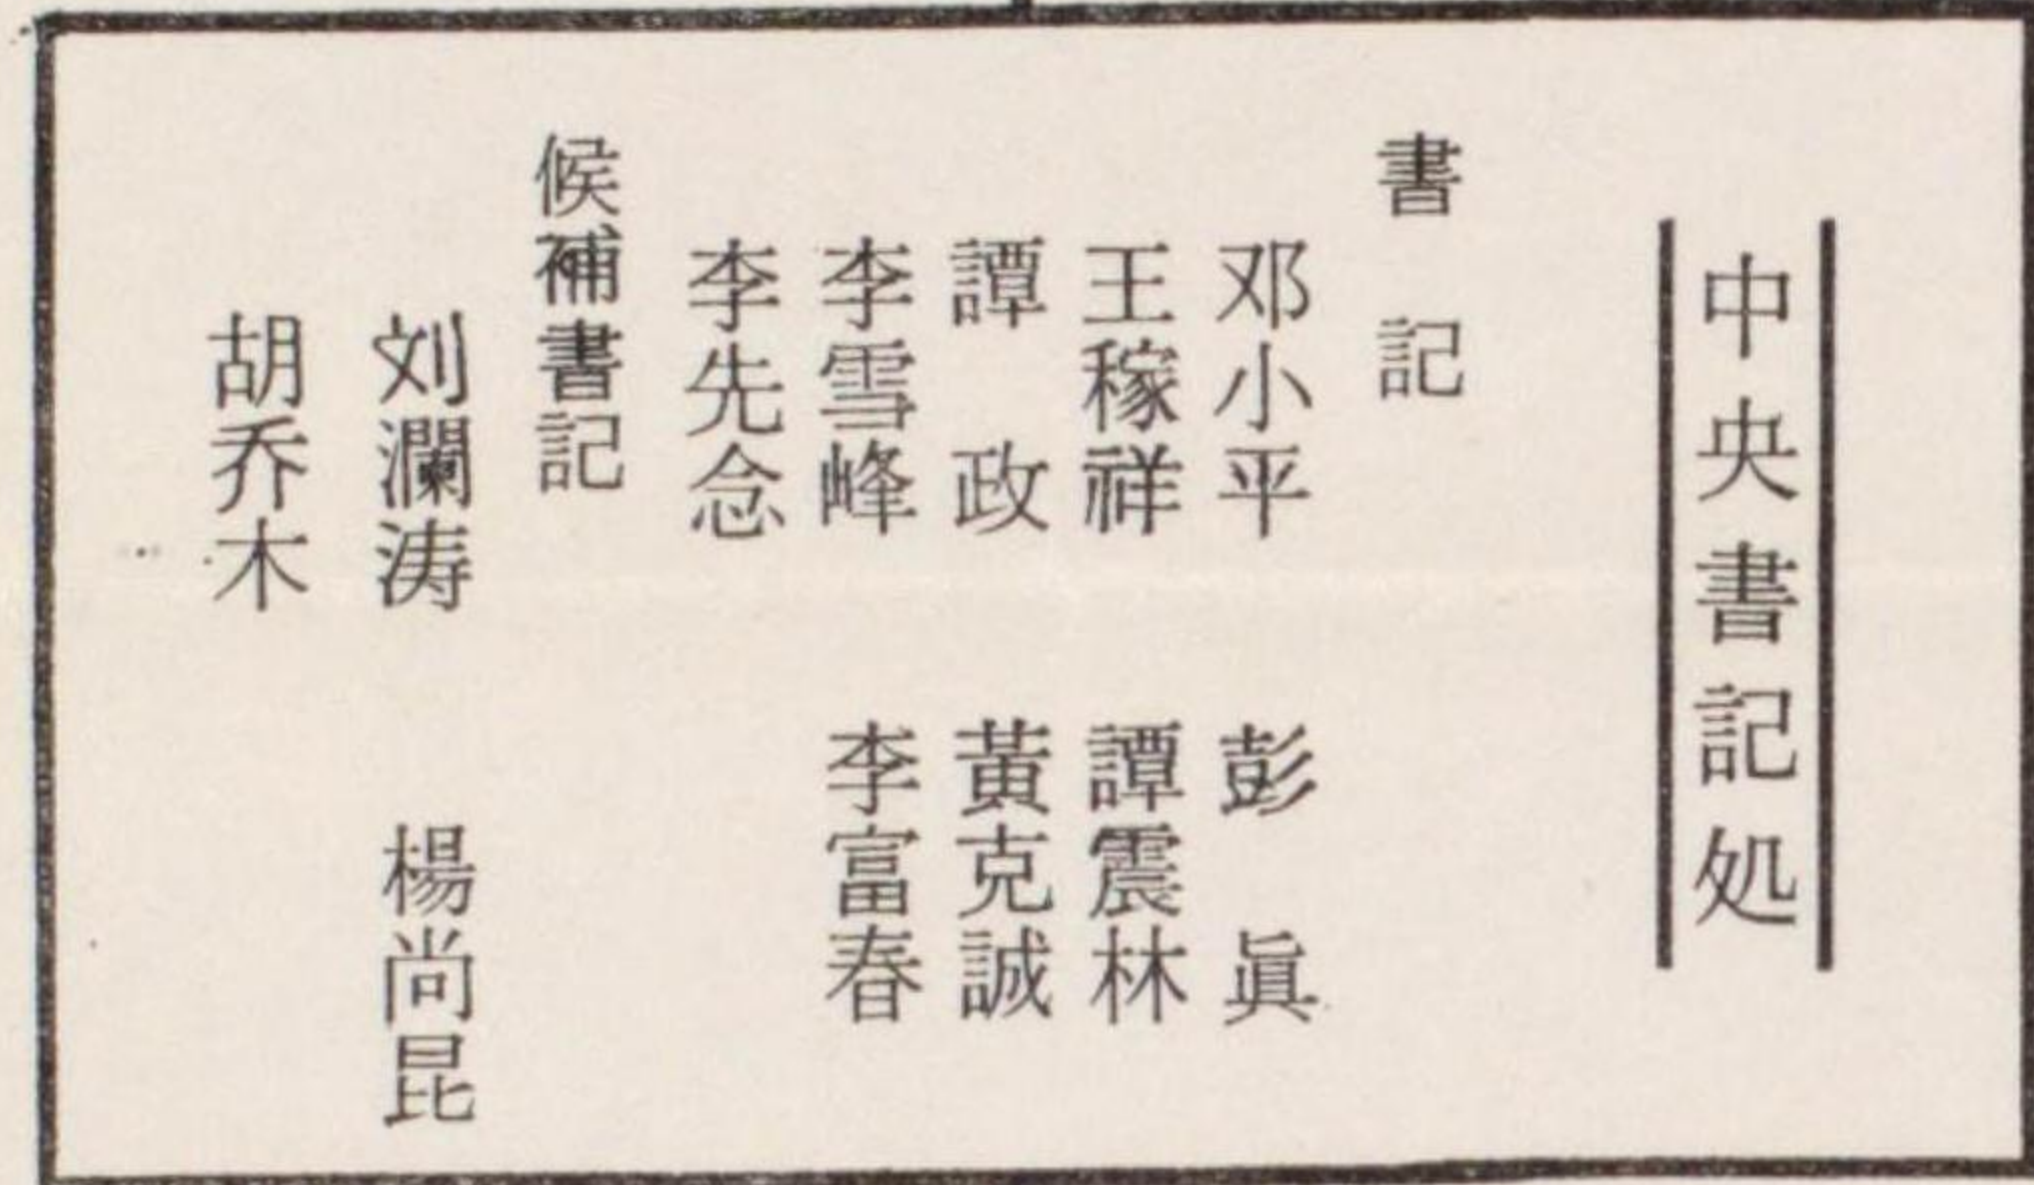 中央書記処
書記
邓小平 彭眞
王稼祥 譚震林
譚政 黃克誠
李雪峰 李富春
李先念
候補書記
刘瀾涛 楊尚昆
胡乔木